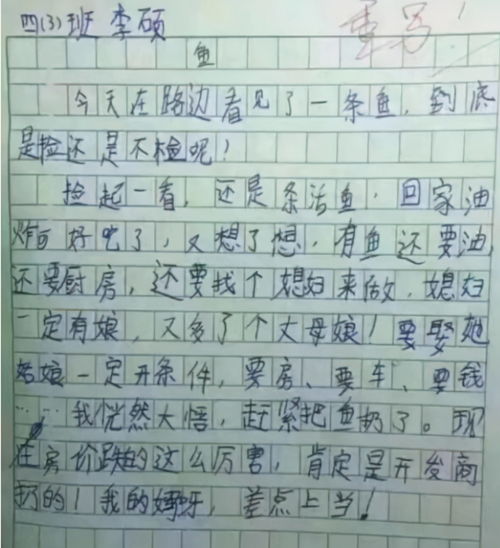 四(3)班 李硕
重写!
鱼
今天在路边看见了一条鱼，到底
是捡还是不检呢！
捡起一看，还是条活鱼，回家油
炸可好吃了，又想了想，有鱼还要油
还要厨房，还要找个媳妇来做，媳妇
一定有娘，又多了个丈母娘！要娶她
姑娘一定开条件，要房、要车、要钱
……我恍然大悟，赶紧把鱼扔了。现
在房价跌的这么厉害，肯定是开发商
扔的！我的妈呀，差点上当！